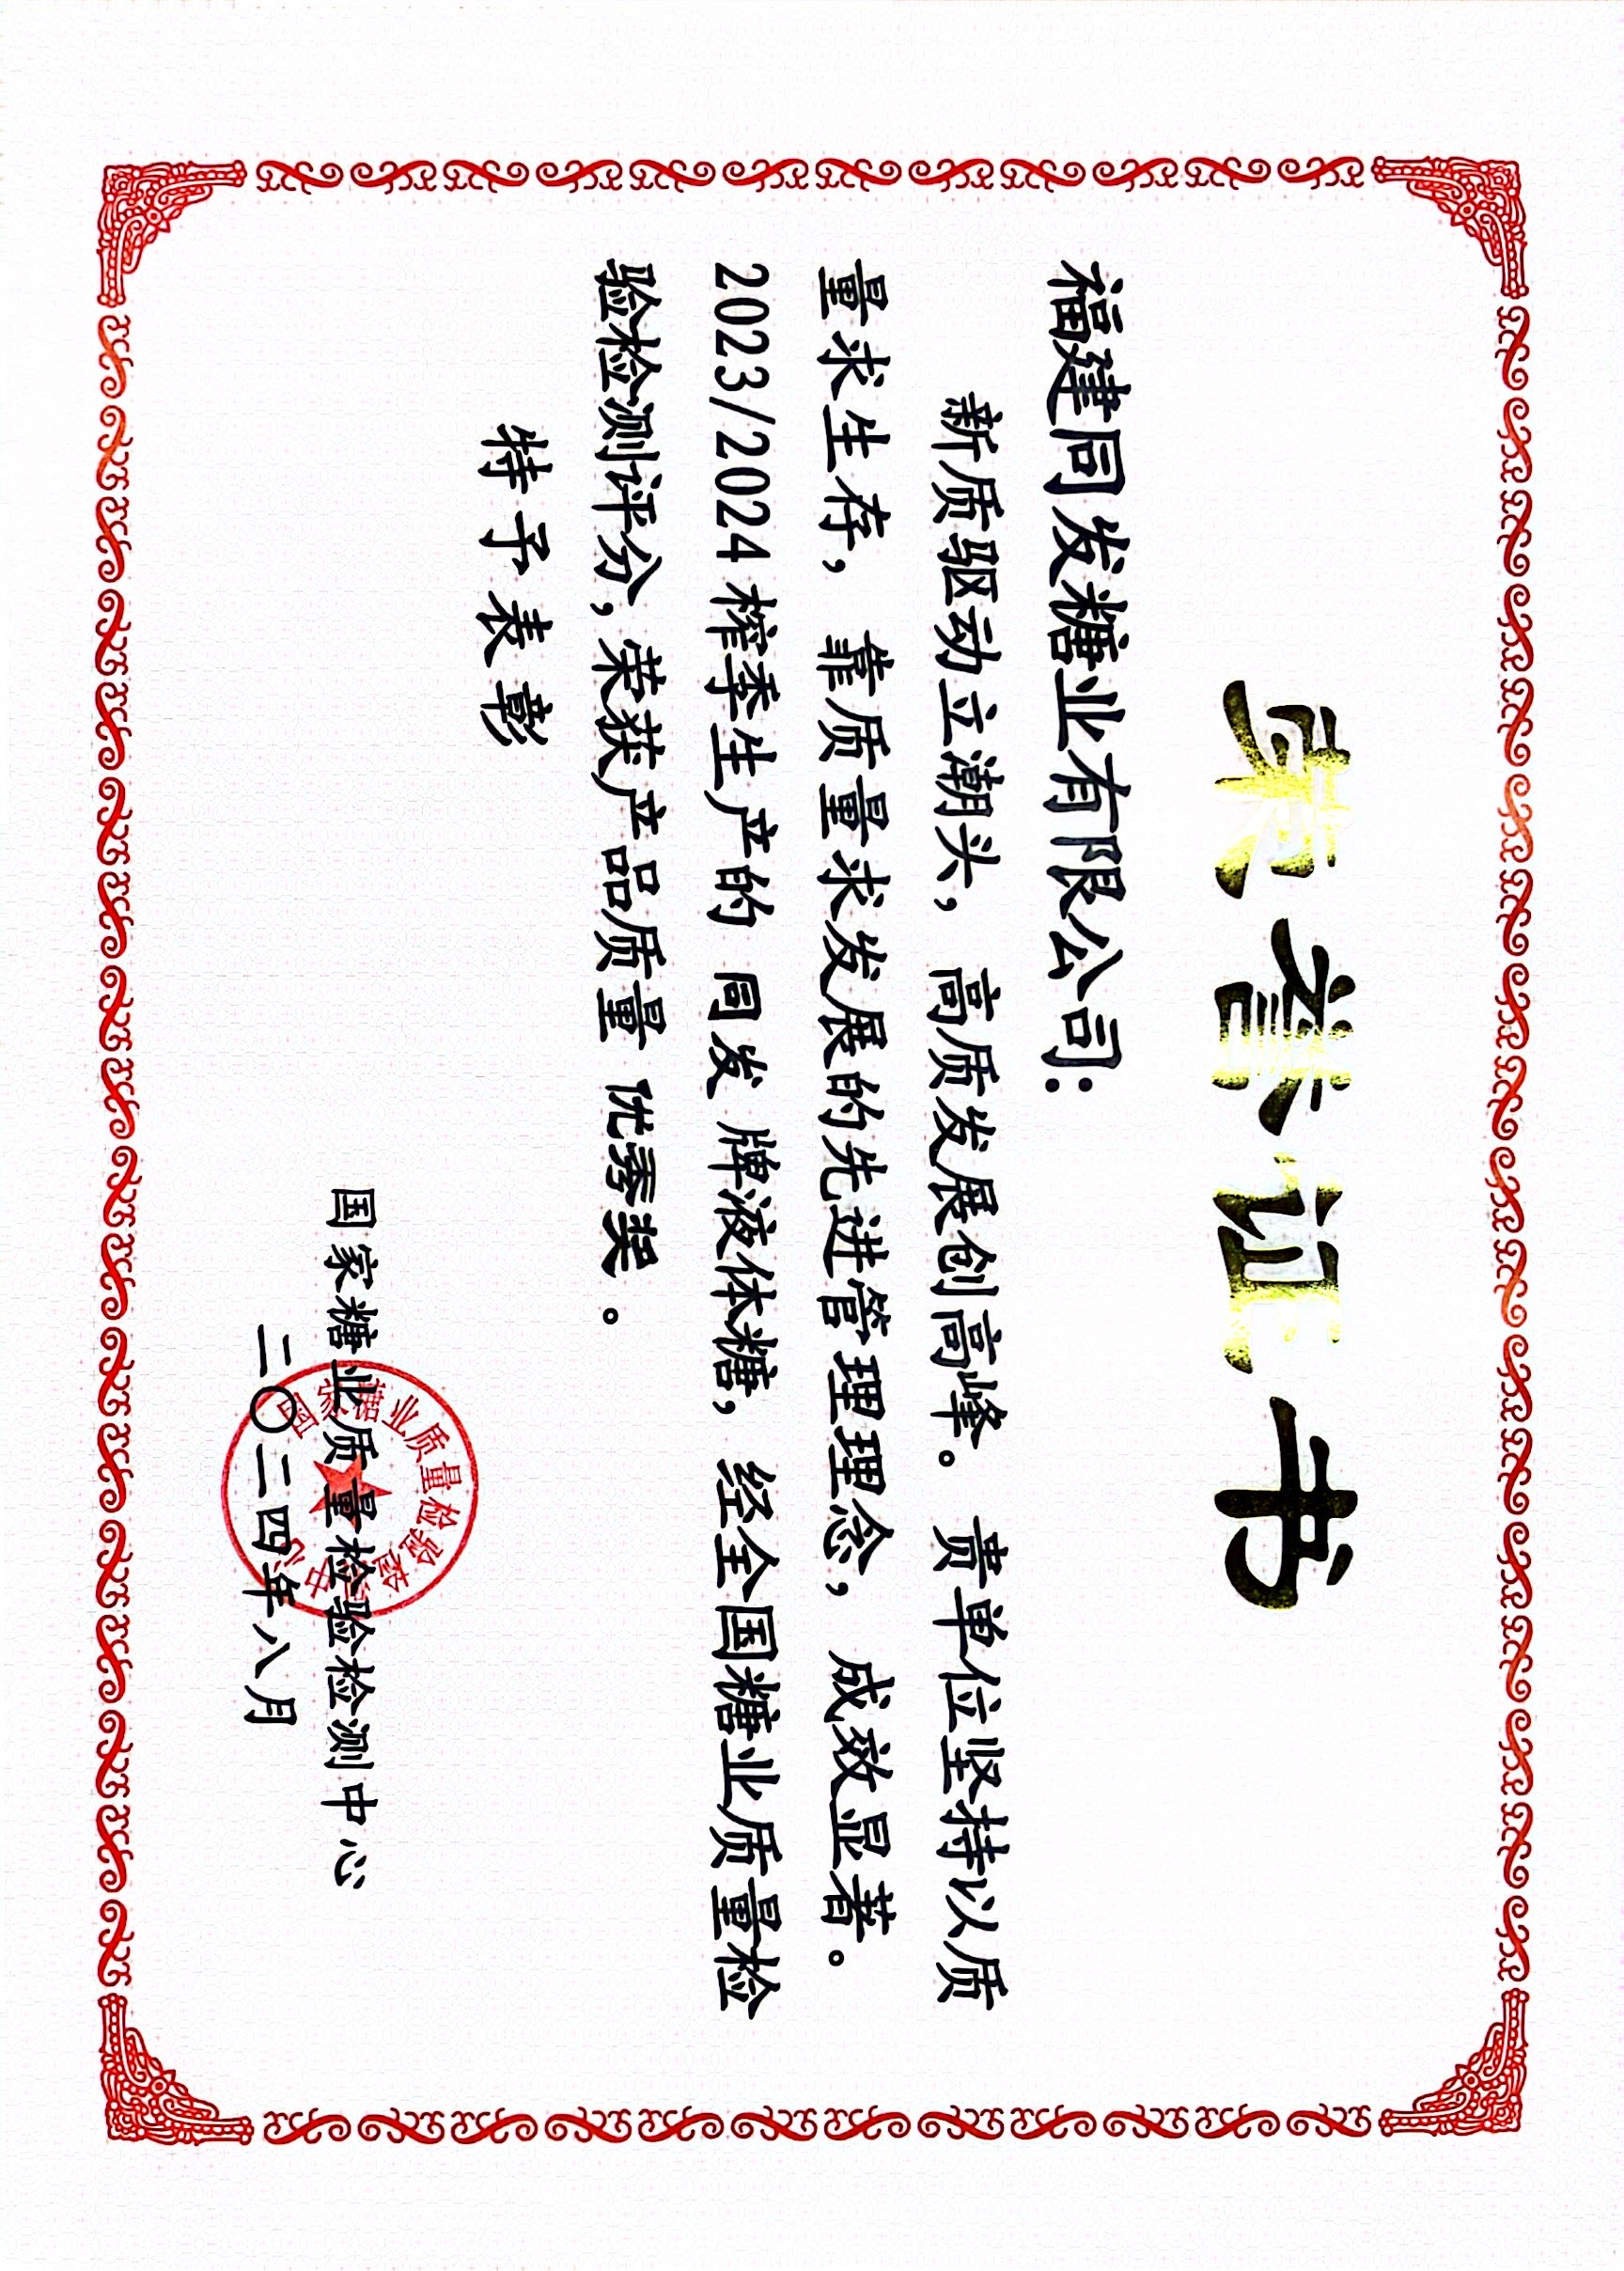 荣誉证书
福建同发糖业有限公司：
新质驱动立潮头，高质发展创高峰。贵单位坚持以质
量求生存，靠质量求发展的先进管理理念，成效显著。
2023/2024榨季生产的 同发 牌液体糖，经全国糖业质量检
验检测评分，荣获产品质量 优秀奖 。
特予表彰
国家糖业质量检验检测中心
二〇二四年八月
国家糖业质量检验检测中心